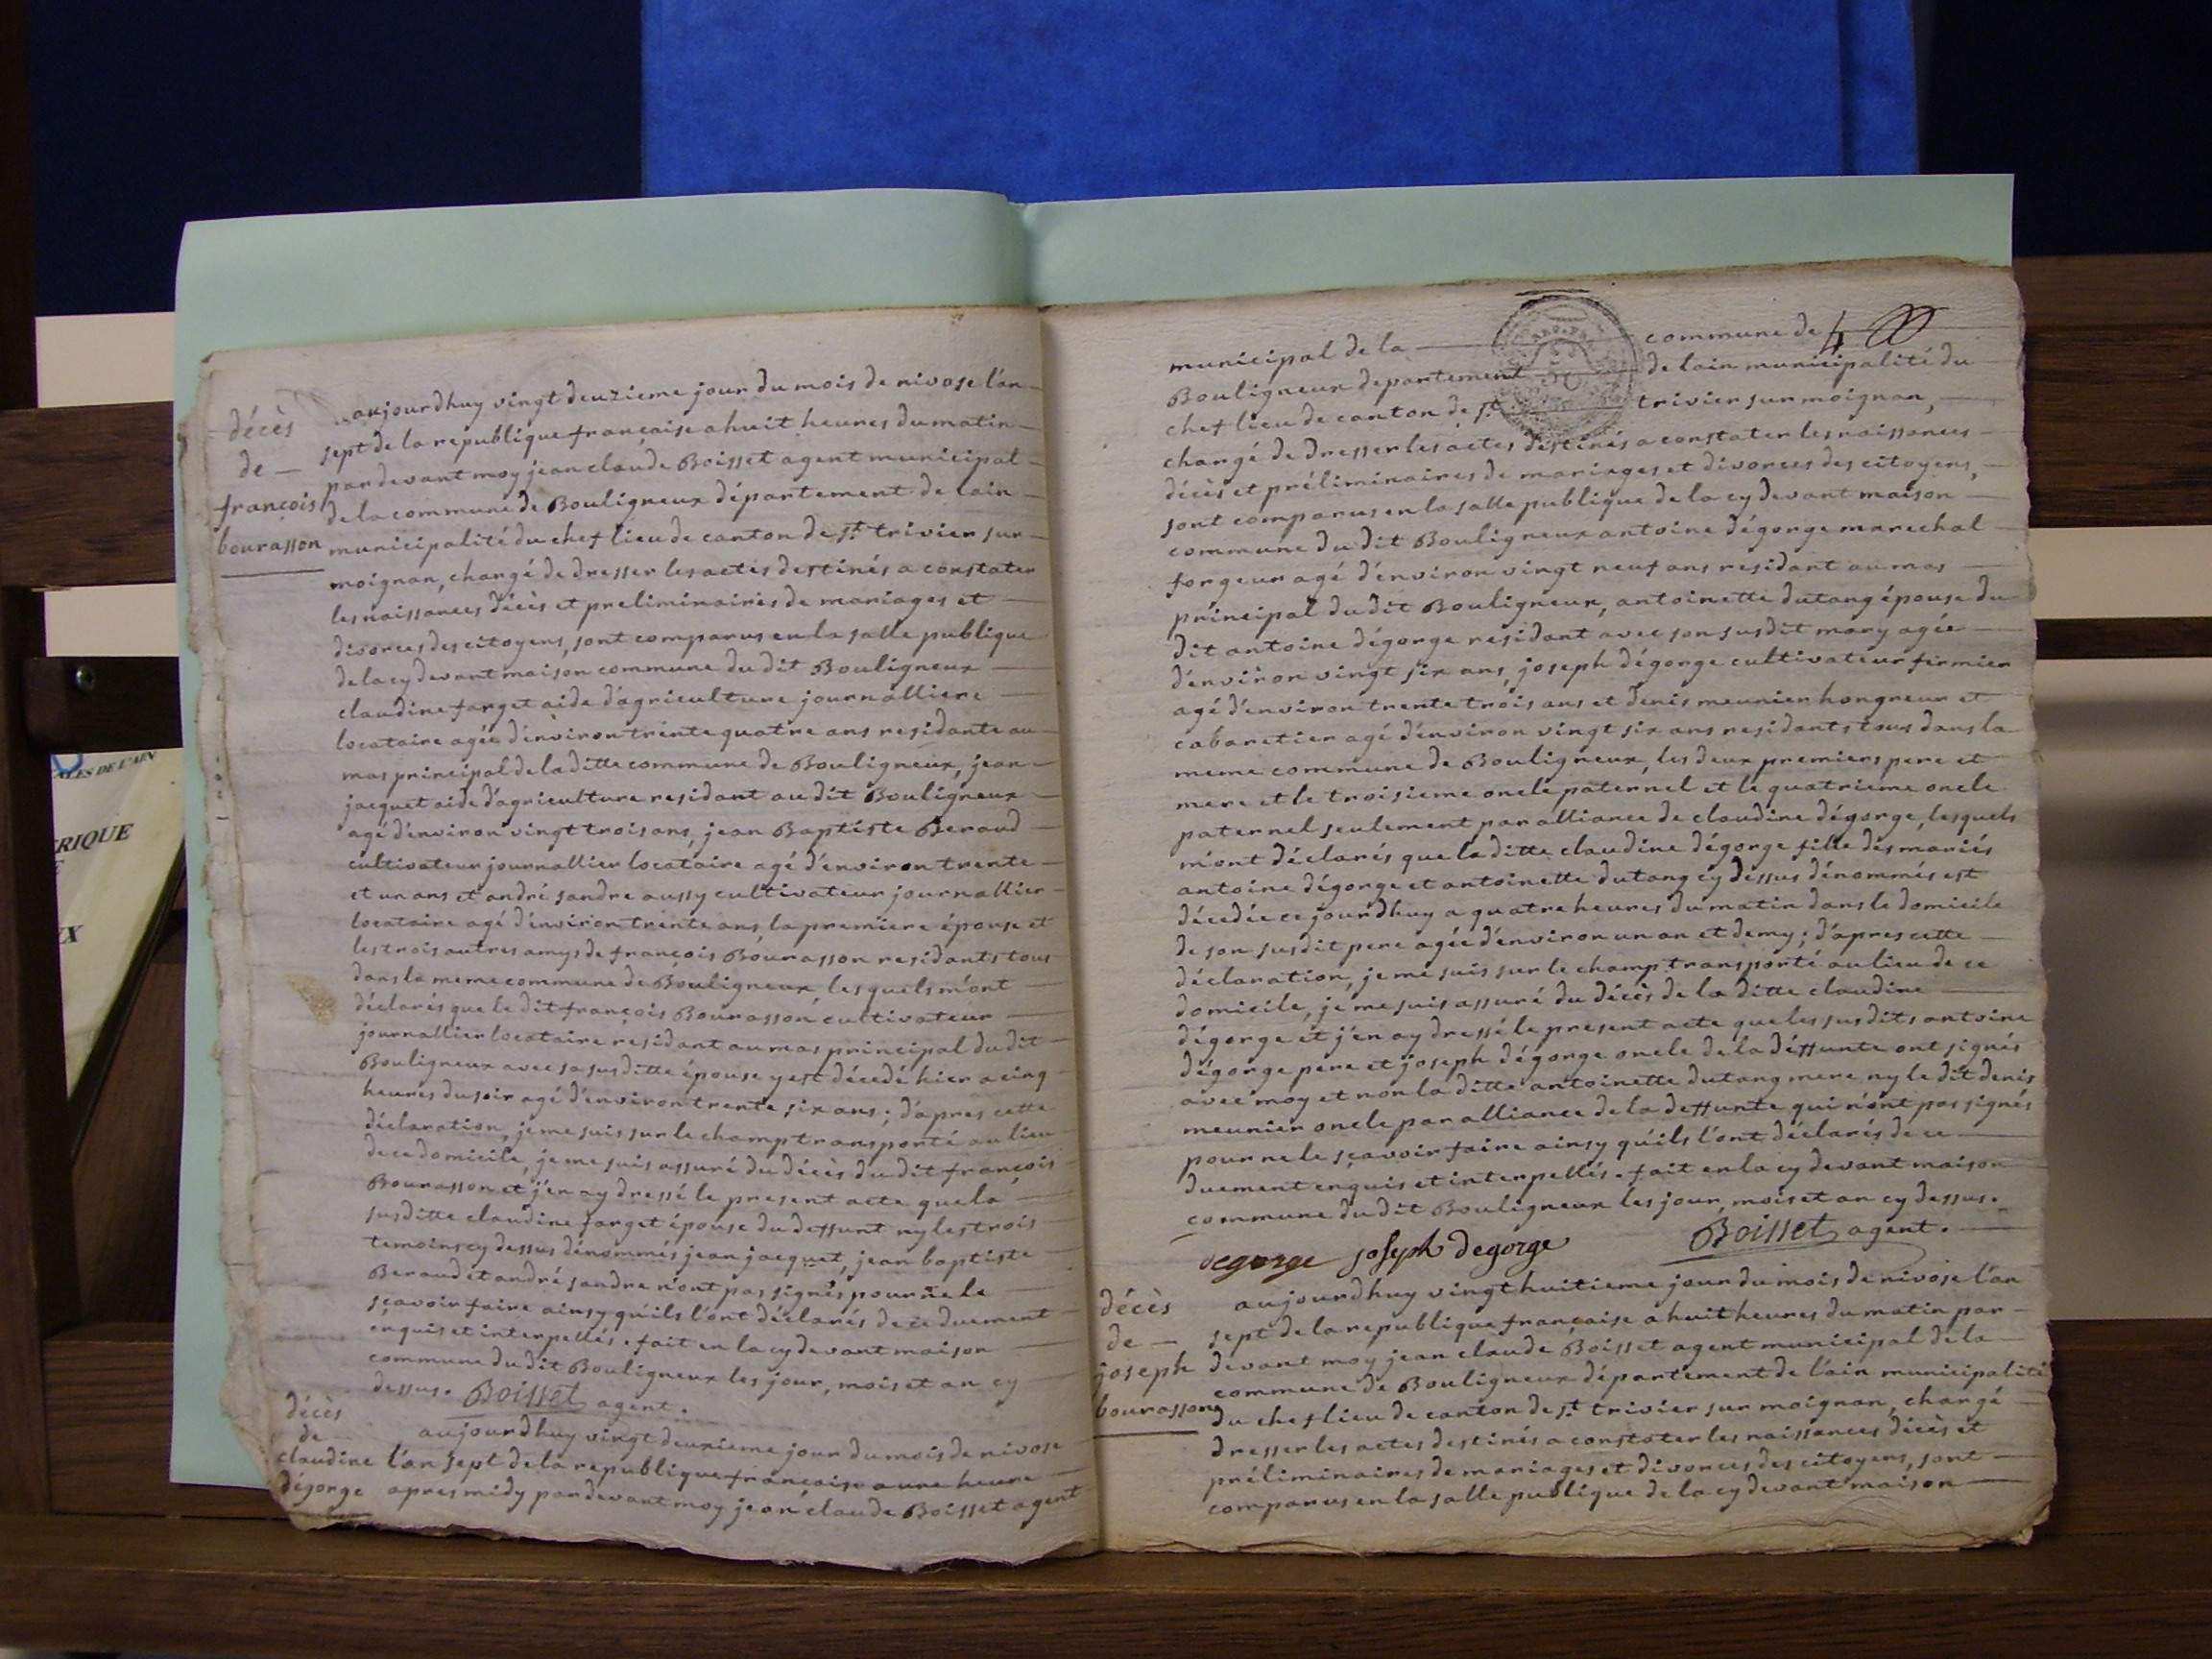 décès
de
françois
bourasson
aujourdhuy vingt deuzieme jour du mois de nivose l'an
sept de la republique française a huit heures du matin
pardevant moy jean claude Boisset agent municipal
de la commune de Bouligneux département de lain
municipalité du chef lieu de canton de st trivier sur
moignan, chargé de dresser les actes destinés a constater
les naissances décès et preliminaires de mariages et
divorces des citoyens, sont comparus en la salle publique
de la cy devant maison commune du dit Bouligneux
claudine farget aide d'agriculture journalliere
locataire agée d'environ trente quatre ans residante au
mas principal de la ditte commune de Bouligneux, jean
jacquet aide d'agriculture residant au dit Bouligneux
agé d'environ vingt trois ans, jean Baptiste Beraud
cultivateur journallier locataire agé d'environ trente
et un ans et andré sandre aussy cultivateur journallier
locataire agé d'environ trente ans, la premiere épouse et
les trois autres amys de françois Bourasson residants tous
dans la meme commune de Bouligneux, lesquels m'ont
déclarés que le dit françois Bourasson cultivateur
journallier locataire residant au mas principal du dit
Bouligneux avec sa susditte épouse y est décedé hier a cinq
heures du soir agé d'environ trente six ans; d'apres cette
déclaration, je me suis sur le champ transporté au lieu
de ce domicile, je me suis assuré du décès du dit françois
Bourasson et j'en ay dressé le present acte que la
susditte claudine farget épouse du deffunt ny les trois
temoins cy dessus dénommés jean jacquet, jean baptiste
Beraud et andré sandre n'ont pas signés pour ne le
sçavoir faire ainsy qu'ils l'ont déclarés de ce duement
enquis et interpellés. fait en la cy devant maison
commune du dit Bouligneux les jour, mois et an cy
dessus. Boisset agent.
décès
de
claudine
dégorge
aujourdhuy vingt deuxieme jour du mois de nivose
l'an sept de la republique française a une heure
apres midy pardevant moy jean claude Boisset agent
municipal de la commune de 4
Bouligneux departement de lain municipalité du
chef lieu de canton de st trivier sur moignan,
chargé de dresser les actes destinés a constater les naissances
décès et préliminaires de mariages et divorces des citoyens,
sont comparus en la salle publique de la cy devant maison
commune du dit Bouligneux antoine dégorge marechal
forgeur agé d'environ vingt neuf ans residant au mas
principal du dit Bouligneux, antoinette dutang épouse du
dit antoine dégorge residant avec son susdit mary agée
d'environ vingt six ans, joseph dégorge cultivateur fermier
agé d'environ trente trois ans et denis meunier hongreur et
cabaretier agé d'environ vingt six ans residants tous dans la
meme commune de Bouligneux, les deux premiers pere et
mere et le troisieme oncle paternel et le quatrieme oncle
paternel seulement par alliance de claudine dégorge, lesquels
m'ont déclarés que la ditte claudine dégorge fille des mariés
antoine dégorge et antoinette dutang cy dessus dénommés est
décedée ce jourdhuy a quatre heures du matin dans le domicile
de son susdit pere agée d'environ un an et demy; d'apres cette
déclaration, je me suis sur le champ transporté au lieu de ce
domicile, je me suis assuré du décès de la ditte claudine
dégorge et j'en ay dressé le present acte que les susdits antoine
dégorge pere et joseph dégorge oncle de la déffunte ont signés
avec moy et non la ditte antoinette dutang mere ny le dit denis
meunier oncle par alliance de la deffunte qui n'ont pas signés
pour ne le sçavoir faire ainsy qu'ils l'ont déclarés de ce
duement enquis et interpellés. fait en la cy devant maison
commune du dit Bouligneux les jour, mois et an cy dessus.
degorge joseph degorge Boisset agent.
décès
de
joseph
bourasson
aujourdhuy vingt huitieme jour du mois de nivose l'an
sept de la republique française a huit heures du matin par
devant moy jean claude Boisset agent municipal de la
commune de Bouligneux département de l'ain municipalité
du chef lieu de canton de st trivier sur moignan, chargé
dresser les actes destinés a constater les naissances décès et
préliminaires de mariages et divorces des citoyens, sont
comparus en la salle publique de la cy devant maison
ALES DE L'AIN
RIQUE
X